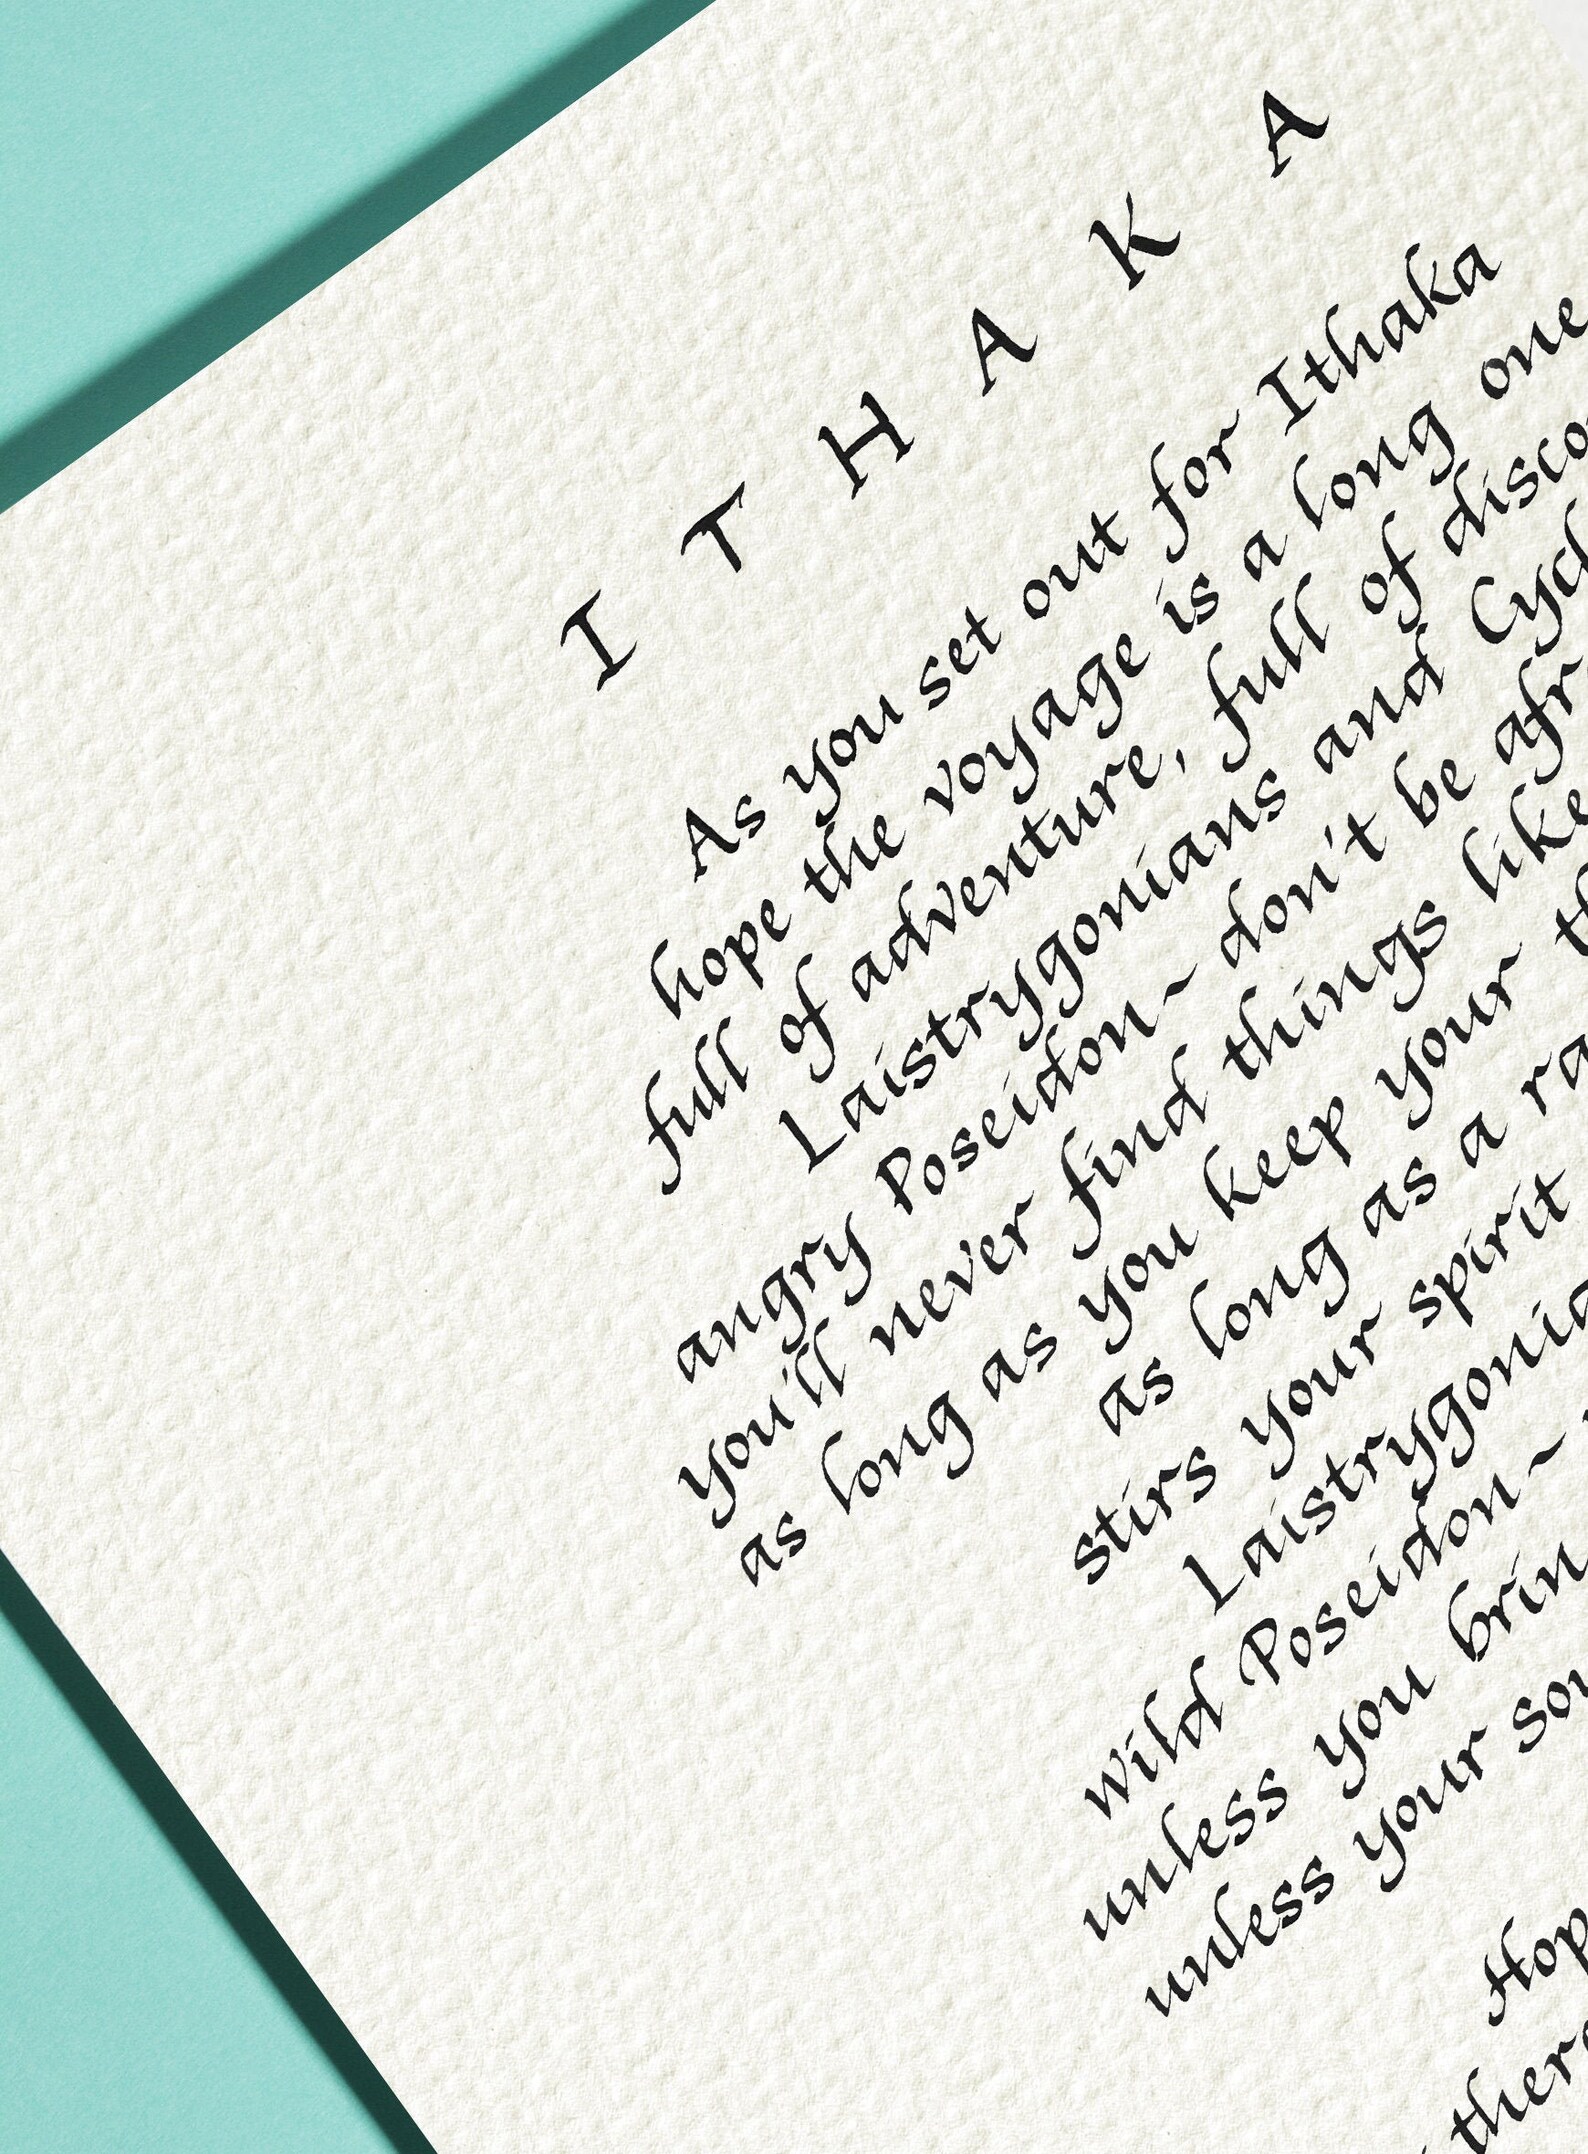 ITHAKA
As you set out for Ithaka
hope the voyage is a long one
full of adventure, full of disco
Laistrygonians and Cycl
angry Poseidon~ don't be afr
you'll never find things like
as long as you keep your th
as long as a ra
stirs your spirit
Laistrygonia
wild Poseidon~
unless you brin
unless your sou
Hop
there